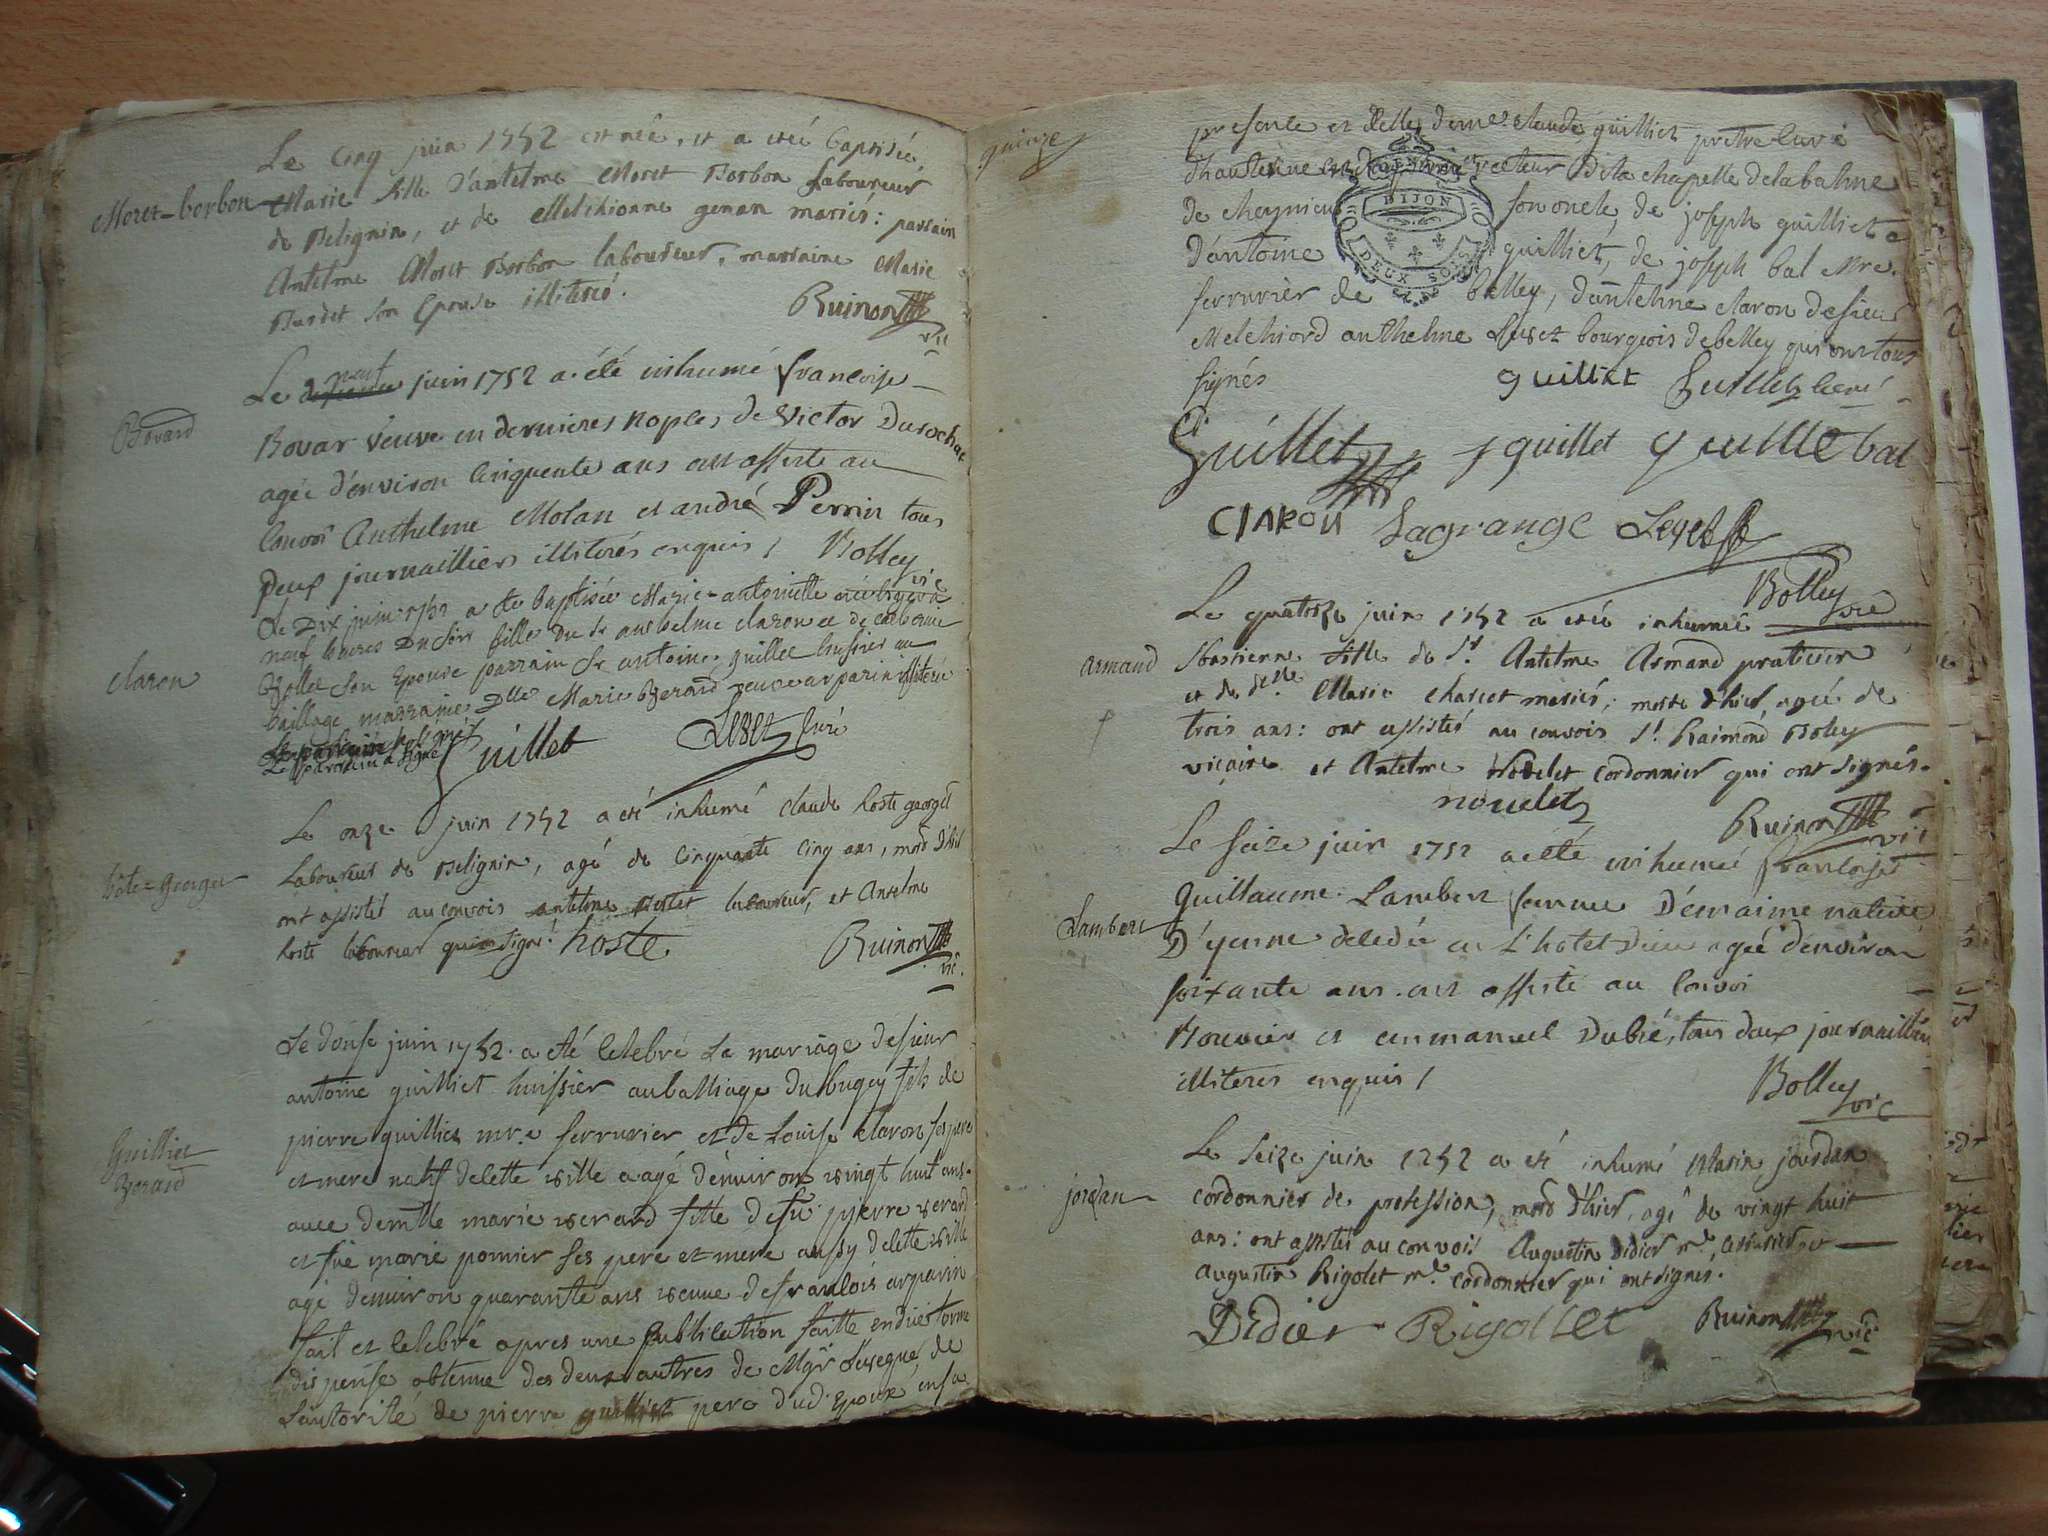 Le cinq juin 1752 est née, et a etée baptisée,
Moret-borbon
Marie fille d'antelme Moret Borbon laboureur
de Belignin, et de Melchionne genan mariés: parrain
Antelme Moret Borbon laboureur, marraine Marie
Burdet son epouse illiterés.
Ruinon vic
Le neuf juin 1752 a été inhumé francoise
Bovard
Bovar veuve en dernieres noples de Victor Durochat
agée d'environ cinquente ans ont assisté au
convoi Anthelme Molan et andré Perrin tous
deux journailliers illiterés enquis / Bolley
vic
Le Dix juin 1752 a ete baptisée Marie-antoinette née
neuf heures du soir fille du Sr anthelme claron et de
claron
Rollet son Epouse parrain Sr antoine guillet huissier au
baillage marraine Dlle Marie Berard veuve arparin illiterée
Le parrain a signé Guillet Levet curé
Le onze juin 1752 a eté inhumé claude hoste georget
hôte=georget
laboureur de Belignin, agé de cinquante cinq ans, mort d'hier
ont assistés au convois antelme laboureur, et Antelme
hoste laboureur qui signé. hoste Ruinon
vic.
Le douse juin 1752 a eté celebré le mariage de sieur
antoine guilliet huissier au balliage du bugey fils de
pierre guilliet mr.e serrurier et de Louise claron ses pere
Guilliet
Berard
et mere natif de cette ville agé d'environ vingt huit ans
avec demlle marie verard fille de fû pierre verard
et fuë marie pomier ses pere et mere aussy de cette ville
agé d'environ quarante ans veuve de francois arparin
fait et celebré apres une publication faitte en düe forme
dispense obtenue des deux autres de Mgr. l'evegue, de
l'autorité de pierre guilliet pere dud. epoux en sa
quinze
presence et d'elle de me. claude guilliet prêtre curé
recteur de la chapelle de la balme
de cheynieu son oncle, de joseph guilliet
DIJON
d'antoine guilliet, de joseph bal mre.
DEUX SOLS
serrurier de belley, d'antelme claron de sieur
Melchiord anthelme Levet bourgeois de belley qui ont tous
signés guilliet Guillet curé
Guillet j guillet guillie bal
CLARON Lagrange Levet
Bolley vic
Le quatorze juin 1752 a etée inhumée
armand
Sbastienne fille de Sr. Antelme Armand praticien
et de delle Marie charcet mariés; morte d'hier, agée de
trois ans: ont assistés au convois Sr. Raimond Boley
vicaire et Antelme Nodelet cordonnier qui ont signés.
nouelet Ruinon vic
Le seize juin 1752 a été inhumée francoise
guillaume Lambert femme D'emaime native
Lambert
D'yenne deledée en L'hotel Dieu agée d'environ
soixante ans. ont assisté au convoi
Bouvier et emmanuel Dubié, tous deux journailliers
illiteres enquis / Bolley
vic
Le seize juin 1752 a eté inhumé Marin jourdan
jordan
cordonnier de profession, mort d'hier, agé de vingt huit
ans: ont assistés au convoi Augustin didier md.
augustin Rigolet md. cordonnier qui ont signes.
Didier Rigollet Ruinon vic